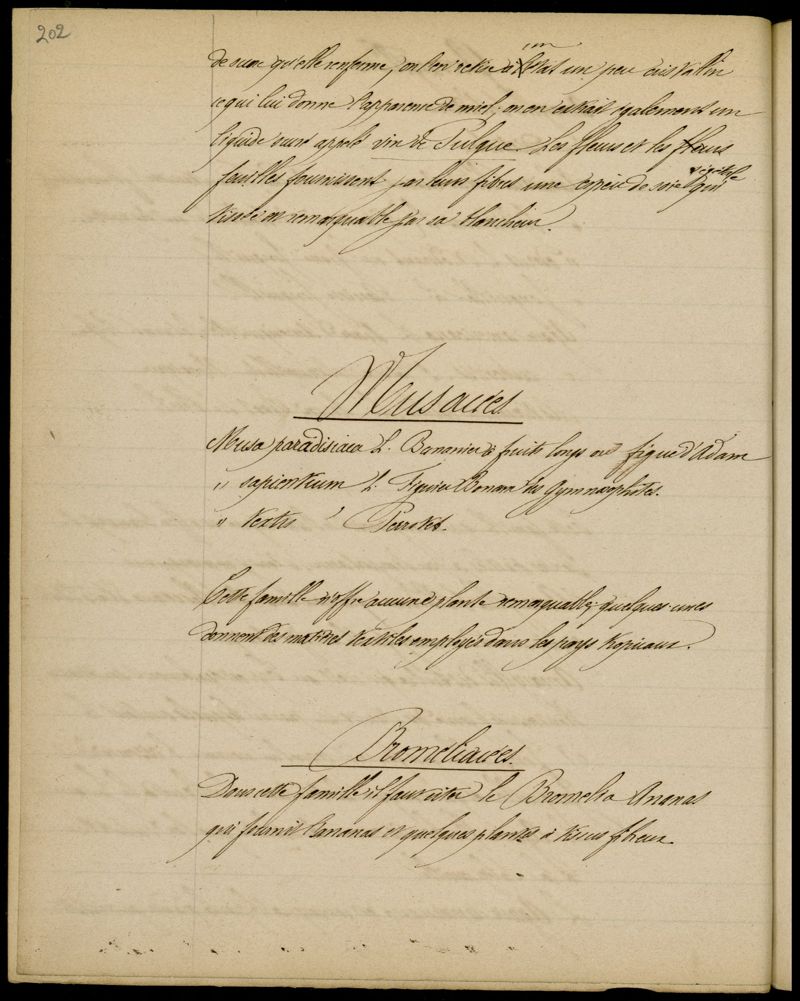 202
de sucre qu'elle renferme, on l'en retire à l'état un peu cristallin
ce qui lui donne l'apparence de miel; on en extrait également un
liquide sucré appelé vin de Pulque. Les fleurs et les
feuilles fournissent par leurs fibres une espèce de soie végétale qui
tissée est remarquable par sa blancheur.
Musacées
Musa paradisiaca L. Bananier à fruits longs ou figue d'Adam
" sapientium L. Figuier Banan des Gymnosophistes.
" textis Perrotet.
Cette famille n'offre aucune plante remarquable, quelques-unes
donnent des matières textiles employés dans les pays tropicaux.
Broméliacées
Dans cette famille il faut citer le Bromelia Ananas
qui fournit l'ananas et quelques plantes à tissus fibreux